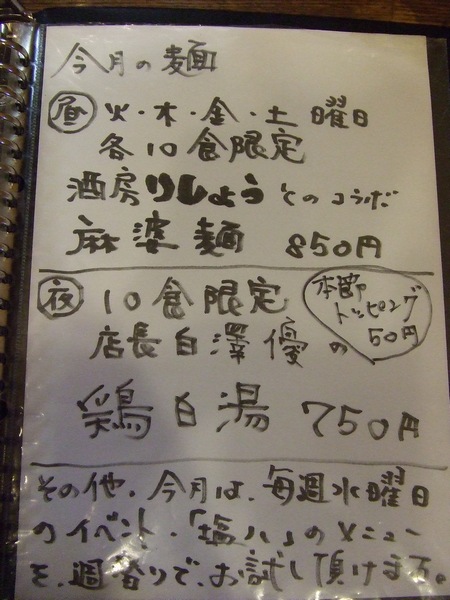 今月の麺
昼 火・木・金・土曜日
各10食限定
酒房りしょうとのコラボ
麻婆麺 850円
夜 10食限定
本節
トッピング
50円
店長白澤優の
鶏白湯 750円
その他、今月は、毎週水曜日
のイベント、「塩八」のメニュー
を、週替りで、お試し頂けます。